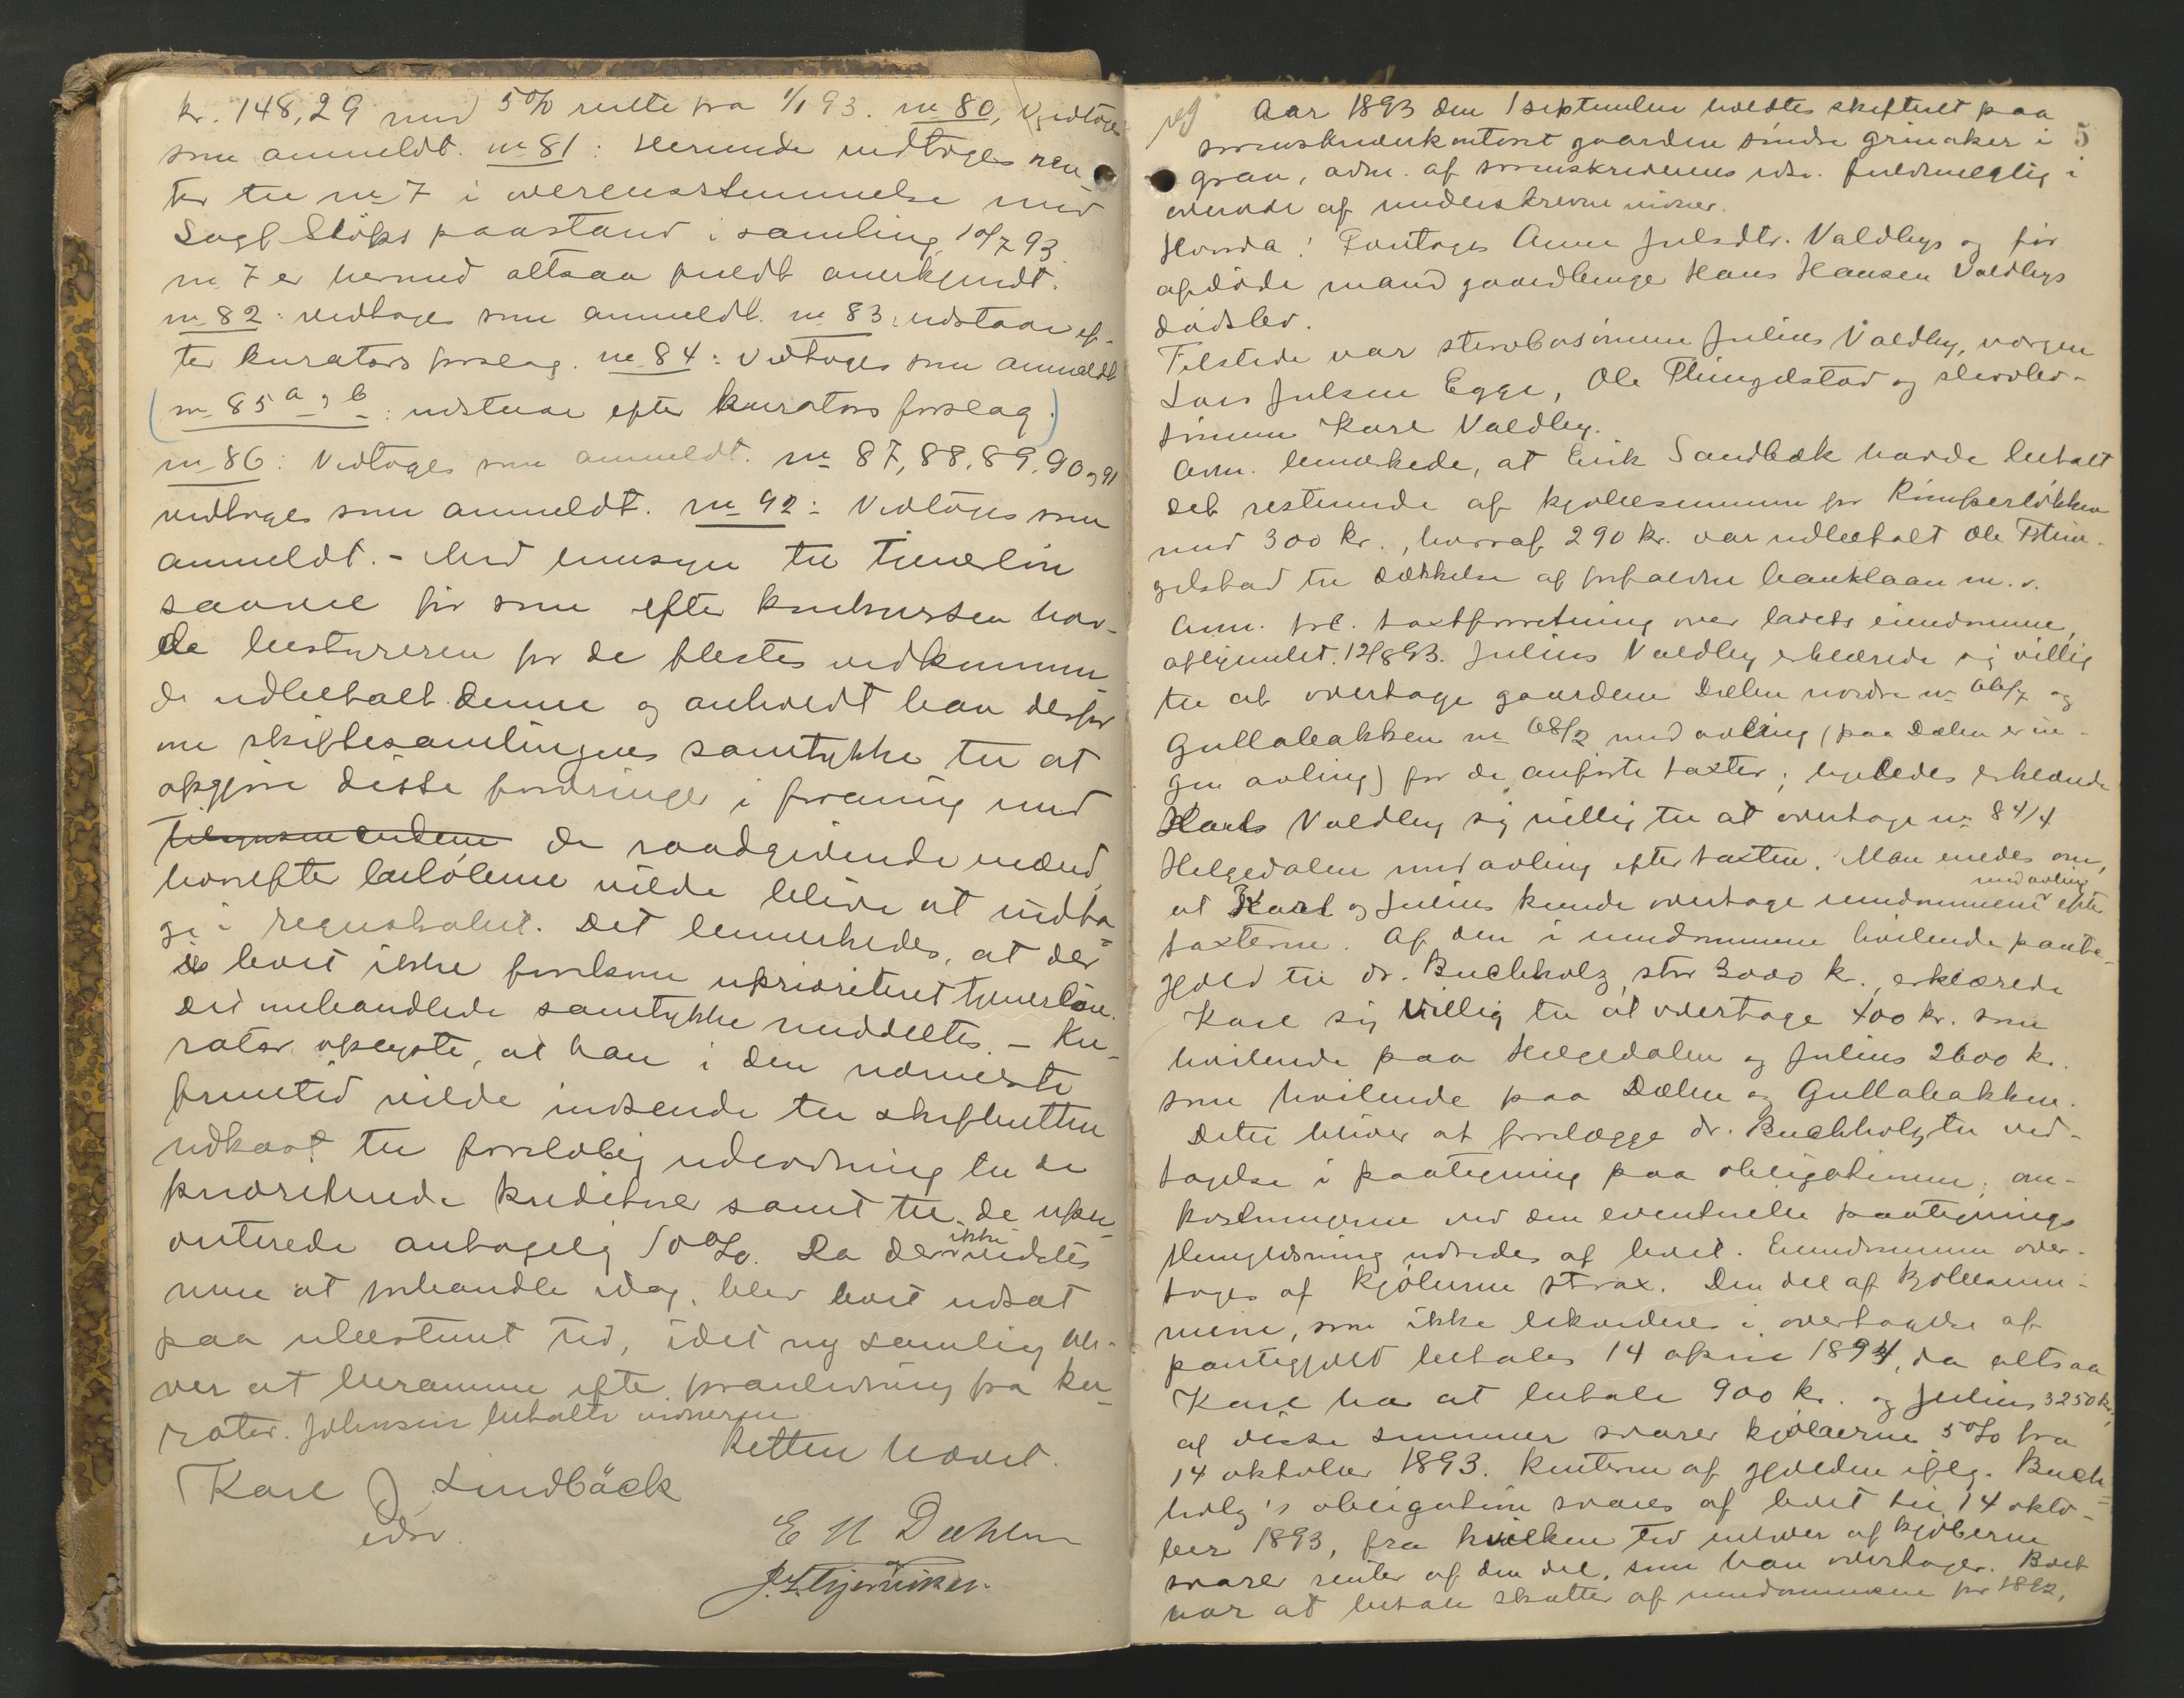 kr. 148,29 med 5% rente fra 1/1 93. no 80, Vedtoges
som anmeldt. no 81: Herunde vedtoges ren-
ter til no 7 i overensstemmelse med
Sagf. Stöps paastand i samling 10/7 93.
no 7 er hermed altsaa fuldt anerkjendt.
no 82: vedtoges som anmeldt. no 83: udstaar ef-
ter kurators forslag. no 84: Vedtoges som anmeldt
(no 85 a og b: udstaar efter kurators forslag.)
no 86: Vedtoges som anmeldt. no 87, 88, 89, 90 og 91
vedtoges som anmeldt. no 92: Vedtoges som
anmeldt. - Med hensyn til tjenerløn
saavel før som efter konkursen hav-
de bestyreren for de flestes vedkommen-
de udbetalt denne og anholdt han derfor
om skiftesamlingens samtykke til at
opgjøre disse fordringer i forening med
tilsynsmændene de raadgivende mænd,
hvorefter beløbene vilde blive at indta-
ge i regnskabet. Det bemærkedes, at der
i boet ikke forekom uprioriteret tjenerløn.
Det omhandlede samtykke meddeltes. - Ku-
rator oplyste, at han i den nærmeste
fremtid vilde indsende til skifteretten
udkast til foreløbig udlodning til de
prioriterede kreditorer samt til de upri-
oriterede antagelig 50%. Da der ikke vidstes
mere at forhandle idag, blev boet udsat
paa ubestemt tid, idet ny samling bli-
ver at beramme efter foranledning fra ku-
rator. Johnsen betalte vidnerne
Retten hævet.
Karl J Lindbäck
edsv.
E N Dæhlen
5
Aar 1893 den 1 september holdtes skifteret paa
sorenskriverkontoret gaarden søndre Grinaker i
Gran, adm. af sorenskriverens edsv. fuldmægtig i
overvær af underskrevne vidner.
Hvorda: Foretoges Anne Julsdtr. Valdbys og før
afdöde mand gaardbruger Hans Hansen Valdbys
dödsbo.
Tilstede var stervbosönnen Julius Valdby, vergen
Lars Julsen Egge, Ole Thingelstad og stervbo-
sönnen Karl Valdby.
Adm. bemærkede, at Erik Sandbæk havde betalt
det resterende af kjøbesummen for Rimperløkken
med 300 kr., hvoraf 290 kr. var udbetalt Ole Thin-
gelstad til dækkelse af forfaldne banklaan m. v.
Adm. frl. taxtforretning over boets eiendomme,
afhjemlet 12/8 93. Julius Valdby erklærede sig villig
til at overtage gaardene Dælen nordre no 66/7 og
Gullabakken no 68/2 med avling (paa Dælen er in-
gen avling) for de anførte taxter; ligeledes erklærede
Karls Valdby sig villig til at overtage no 84/4
Helgedalen med avling efter taxten. Man enedes om,
at Karl og Julius kunde overtage eiendommene med avling efter
taxterne. Af den i eiendommene hvilende pante-
gjæld til dr. Buchholz, stor 3000 k., erklærede
Karl sig villig til at overtage 400 kr. som
hvilende paa Helgedalen og Julius 2600 k.
som hvilende paa Dælen og Gullabakken.
Dette bliver at forelægge dr. Buchholz til ved-
tagelse i paategning paa obligationen; om-
kostningerne ved den eventuelle paategnings
thinglæsning udredes af boet. Eiendommene over-
tages af kjøberne strax. Den del af kjøbesum-
mene, som ikke likvideres i overtagelse af
pantegjæld betales 14 april 1894, da altsaa
Karl har at betale 900 kr. og Julius 3250 kr.,
af disse summer svarer kjøberne 5% fra
14 oktober 1893. Renterne af gjælden iflg. Buch-
holz's obligation svares af boet til 14 okto-
ber 1893, fra hvilken tid enhver af kjøberne
svarer renter af den del, som han overtager. Boet
har at betale skatter af eiendommene for 1892,